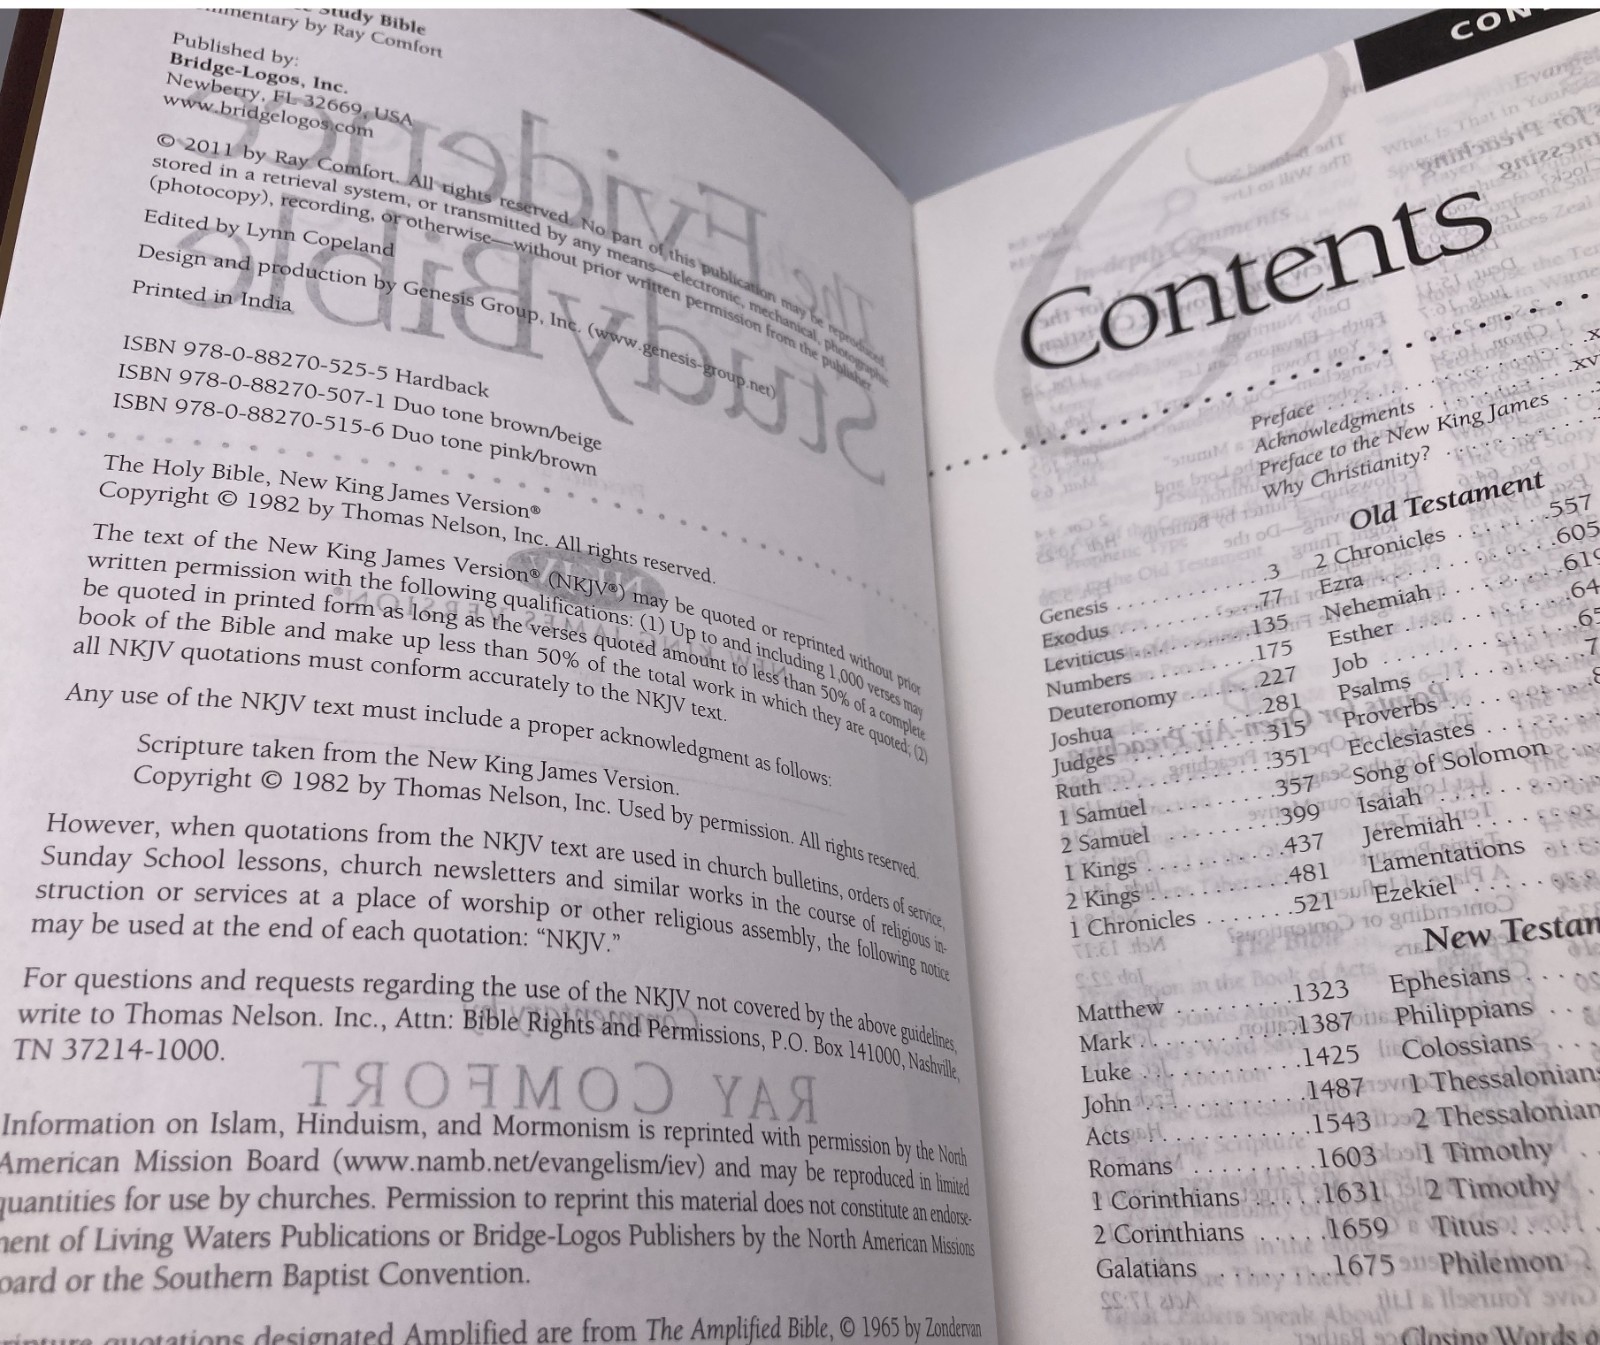 Study Bible
Commentary by Ray Comfort
Published by:
Bridge-Logos, Inc.
Newberry, FL 32669, USA
www.bridgelogos.com
© 2011 by Ray Comfort. All rights reserved. No part of this publication may be reproduced,
stored in a retrieval system, or transmitted by any means—electronic, mechanical, photographic
(photocopy), recording, or otherwise—without prior written permission from the publisher
Edited by Lynn Copeland
Design and production by Genesis Group, Inc. (www.genesis-group.net)
Printed in India
ISBN 978-0-88270-525-5 Hardback
ISBN 978-0-88270-507-1 Duo tone brown/beige
ISBN 978-0-88270-515-6 Duo tone pink/brown
The Holy Bible, New King James Version®
Copyright © 1982 by Thomas Nelson, Inc. All rights reserved.
The text of the New King James Version® (NKJV®) may be quoted or reprinted without prior
written permission with the following qualifications: (1) Up to and including 1,000 verses may
be quoted in printed form as long as the verses quoted amount to less than 50% of a complete
book of the Bible and make up less than 50% of the total work in which they are quoted; (2)
all NKJV quotations must conform accurately to the NKJV text.
Any use of the NKJV text must include a proper acknowledgment as follows:
Scripture taken from the New King James Version.
Copyright © 1982 by Thomas Nelson, Inc. Used by permission. All rights reserved.
However, when quotations from the NKJV text are used in church bulletins, orders of service,
Sunday School lessons, church newsletters and similar works in the course of religious in-
struction or services at a place of worship or other religious assembly, the following notice
may be used at the end of each quotation: “NKJV.”
For questions and requests regarding the use of the NKJV not covered by the above guidelines,
write to Thomas Nelson. Inc., Attn: Bible Rights and Permissions, P.O. Box 141000, Nashville,
TN 37214-1000.
Information on Islam, Hinduism, and Mormonism is reprinted with permission by the North
American Mission Board (www.namb.net/evangelism/iev) and may be reproduced in limited
quantities for use by churches. Permission to reprint this material does not constitute an endorse-
ment of Living Waters Publications or Bridge-Logos Publishers by the North American Missions
oard or the Southern Baptist Convention.
quotations designated Amplified are from The Amplified Bible, © 1965 by Zondervan
CON
Contents
Preface
Acknowledgments
Preface to the New King James
Why Christianity?
Old Testament
Genesis 3
Exodus 77
Leviticus 135
Numbers 175
Deuteronomy 227
Joshua 281
Judges 315
Ruth 351
1 Samuel 357
2 Samuel 399
1 Kings 437
2 Kings 481
1 Chronicles 521
2 Chronicles 557
Ezra 605
Nehemiah 619
Esther
Job
Psalms
Proverbs
Ecclesiastes
Song of Solomon
Isaiah
Jeremiah
Lamentations
Ezekiel
New Testam
Matthew 1323
Mark 1387
Luke 1425
John 1487
Acts 1543
Romans 1603
1 Corinthians 1631
2 Corinthians 1659
Galatians 1675
Ephesians
Philippians
Colossians
1 Thessalonians
2 Thessalonian
1 Timothy
2 Timothy
Titus
Philemon
Closing Words o